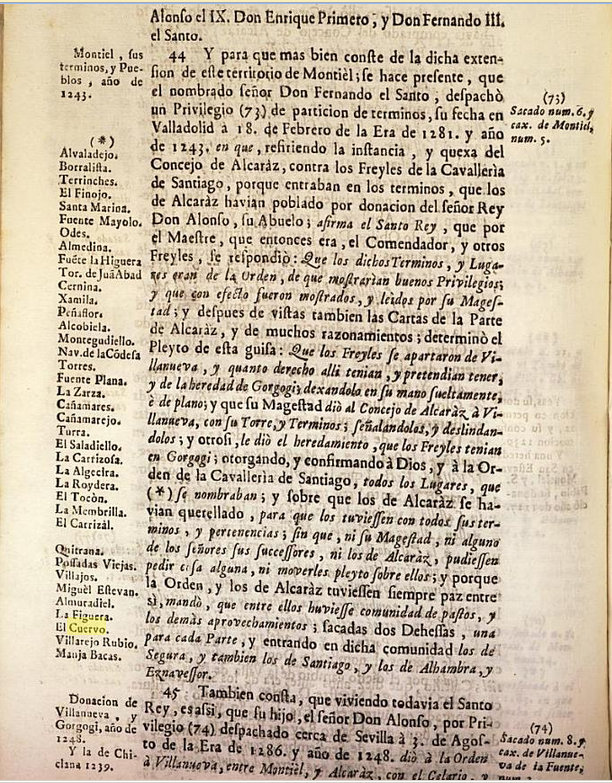 Alonso el IX. Don Enrique Primero, y Don Fernando III.
el Santo.
44 Y para que mas bien conste de la dicha exten-
sion de este territorio de Montièl; se hace presente, que
el nombrado señor Don Fernando el Santo, despachò
un Privilegio (73) de particion de terminos, su fecha en
Valladolid à 18. de Febrero de la Era de 1281. y año
de 1243. en que, refitiendo la instancia, y quexa del
Concejo de Alcaràz, contra los Freyles de la Cavallerìa
de Santiago, porque entraban en los terminos, que los
de Alcaràz havian poblado por donacion del señor Rey
Don Alonso, su Abuelo; afirma el Santo Rey, que por
el Maestre, que entonces era, el Comendador, y otros
Freyles, se respondiò: Que los dichos Terminos, y Luga-
res eran de la Orden, de que mostrarìan buenos Privilegios;
y que con efecto fueron mostrados, y leìdos por su Mages-
tad; y despues de vistas tambien las Cartas de la Parte
de Alcaràz, y de muchos razonamientos; determinò el
Pleyto de esta guisa: Que los Freyles se apartaron de Vi-
llanueva, y quanto derecho alli tenian, y pretendian tener,
y de la heredad de Gorgogì; dexandolo en su mano sueltamente,
è de plano; y que su Magestad diò al Concejo de Alcaràz à Vi-
llanueva, con su Torre, y Terminos; señalandolos, y deslindan-
dolos; y otrosi, le diò el heredamiento, que los Freyles tenian
en Gorgogi; otorgando, y confirmando à Dios, y à la Or-
den de la Cavallerìa de Santiago, todos los Lugares, que
(*) se nombraban; y sobre que los de Alcaràz se ha-
vian querellado, para que los tuviessen con todos sus ter-
minos, y pertenencias; sin que, ni su Magestad, ni alguno
de los señores sus successores, ni los de Alcaràz, pudiessen
pedir cosa alguna, ni moverles pleyto sobre ellos; y porque
la Orden, y los de Alcaràz tuviessen siempre paz entre
sì, mandò, que entre ellos huviesse comunidad de pastos, y
los demàs aprovechamientos; sacadas dos Dehessas, una
para cada Parte, y entrando en dicha comunidad los de
Segura, y tambien los de Santiago, y los de Alhambra, y
Eznavessor.
45 Tambien consta, que viviendo todavia el Santo
Rey, es assi, que su hijo, el señor Don Alonso, por Pri-
vilegio (74) despachado cerca de Sevilla à 3. de Agos-
to de la Era de 1286. y año de 1248. diò à la Orden
à Villanueva, entre Montièl, y Alcaràz, con el Celario, y
Montiel, sus
terminos, y Pue-
blos, año de
1243.
(*)
Alvaladejo.
Borralista.
Terrinches.
El Finojo.
Santa Marina.
Fuente Mayolo.
Odes.
Almedina.
Fuẽte la Higuera
Tor. de Juã Abad
Cernina.
Xamila.
Peñaflor.
Alcobiela.
Montegudiello.
Nav. de la Cõdesa
Torres.
Fuente Plana.
La Zarza.
Cañamares.
Cañamarejo.
Turra.
El Saladiello.
La Carrizosa.
La Algecira.
La Roydera.
El Tocòn.
La Membrilla.
El Carrizàl.
Quitrana.
Possadas Viejas.
Villajos.
Miguèl Estevan.
Almuradiel.
La Figuera.
El Cuervo.
Villarejo Rubio.
Manja Bacas.
Donacion de
Villanueva, y
Gorgogi, año de
1248.
Y la de Chi-
clana 1239.
(73)
Sacado num. 6. y
cax. de Montiel,
num. 5.
(74)
Sacado num. 8. y
cax. de Villanue-
va de la Fuente,